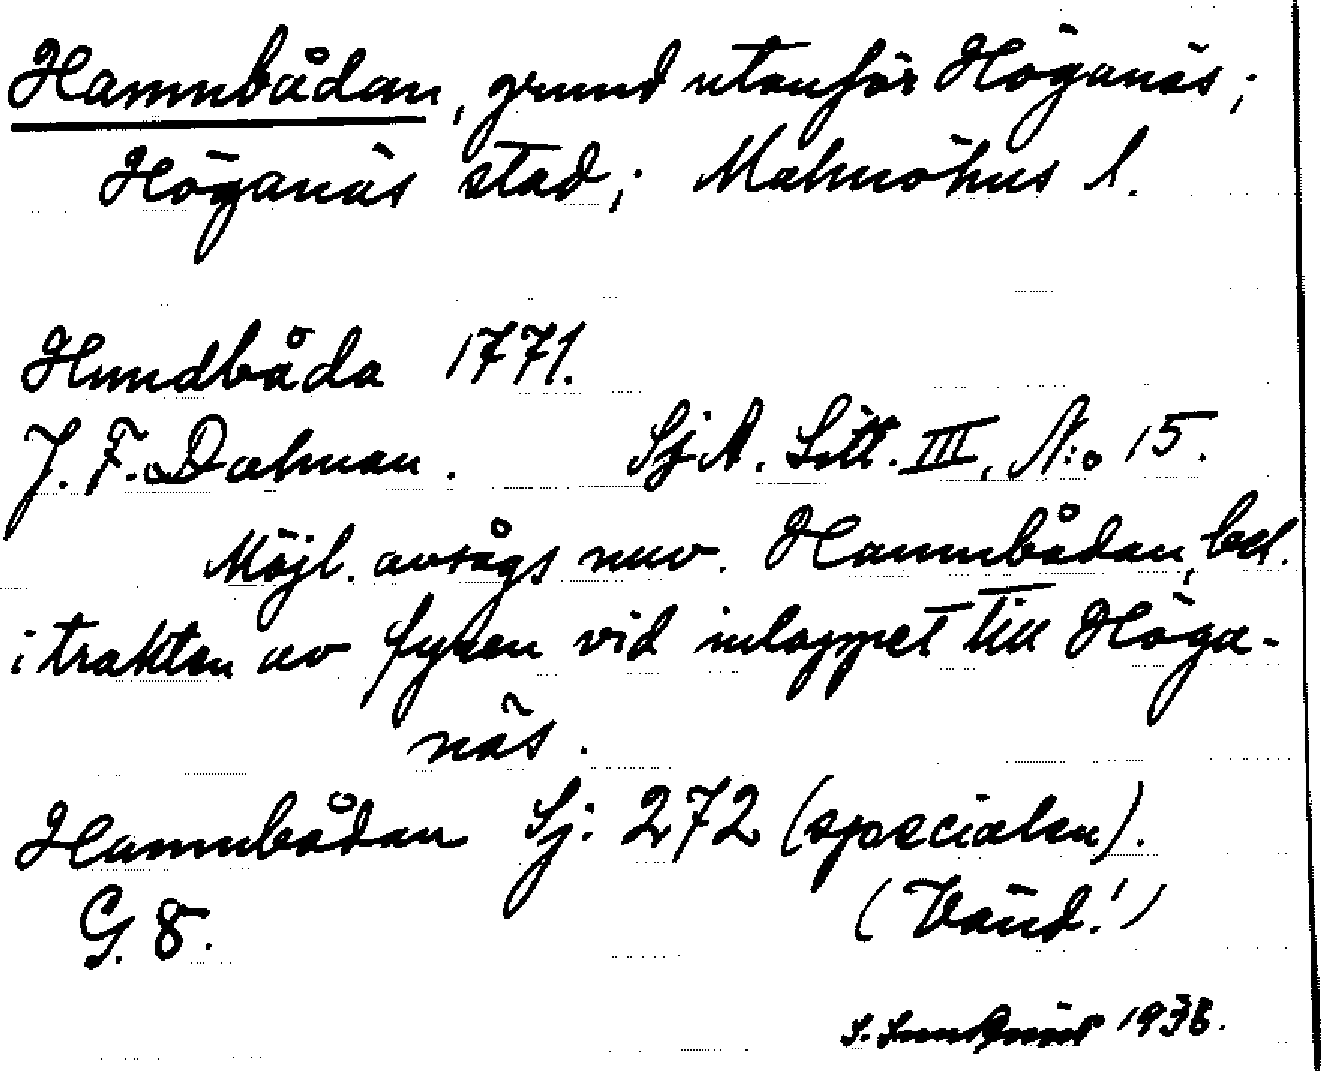 Hamnbådan, grund utanför Höganäs;
Höganäs stad; Malmöhus l.
Hundbåda 1771.
J. F. Dalman. SjA. Litt. III, N:o 15.
Möjl. avsågs nuv. Hamnbådan, bel.
i trakten av fyren vid inloppet till Höga-
näs.
Hamnbådan Sj: 272 (specialen).
G. 8.
(Vänd!)
S. 1938.